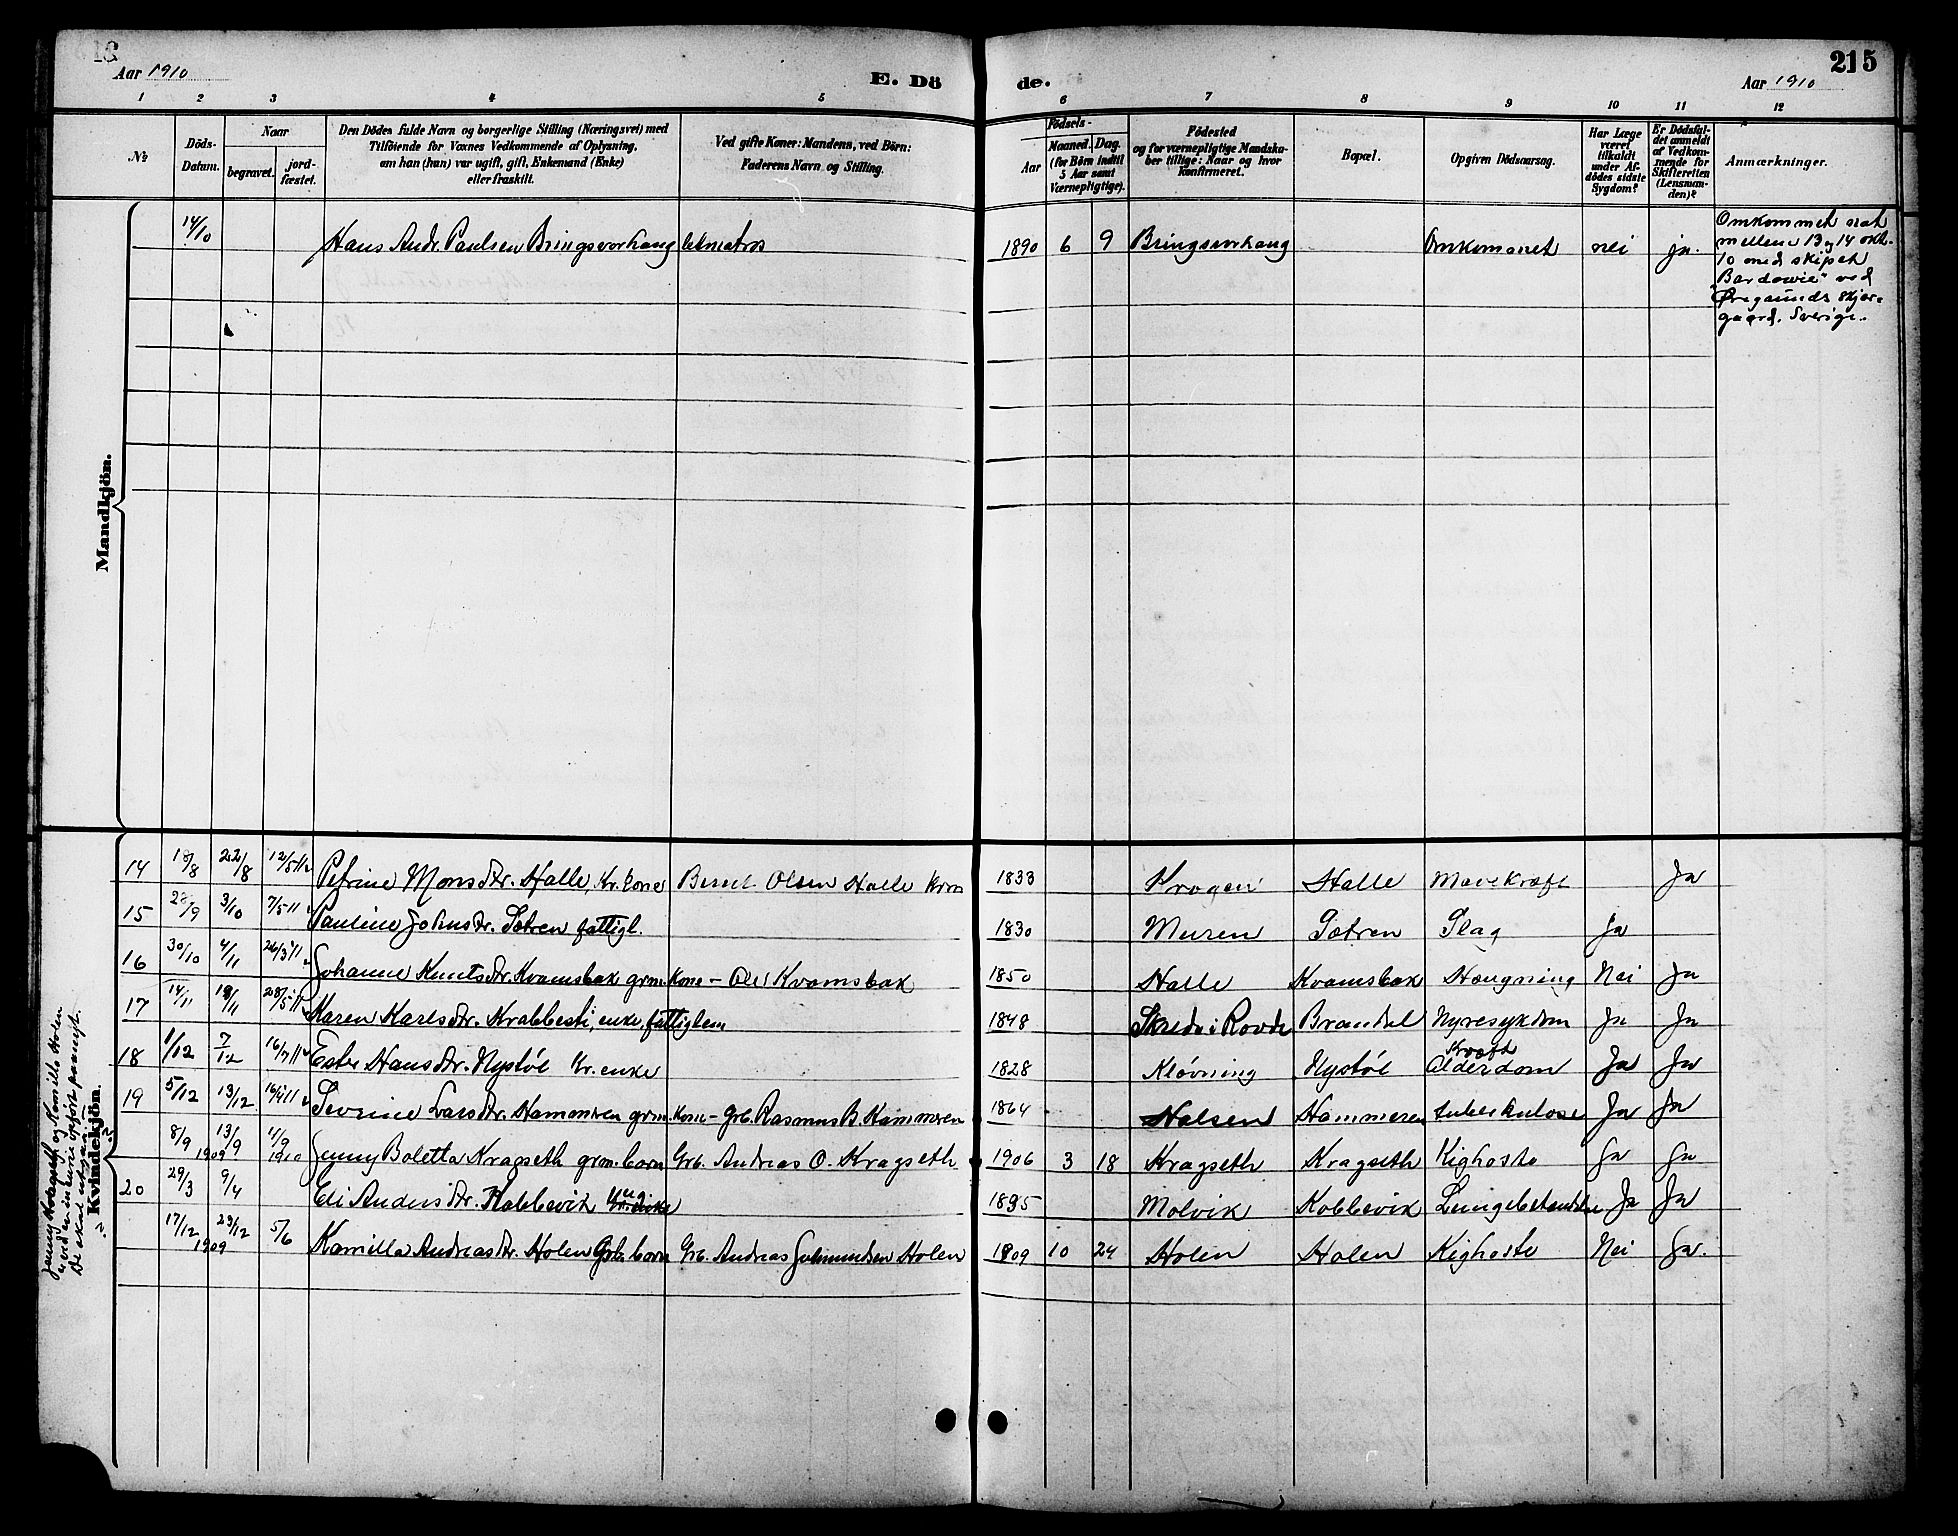 Aar 1910
E. Dö
de.
215
Aar 1910
1 2 3 4 5 6 7 8 9 10 11 12
№
Döds-
Datum.
Naar
begravet.
jord-
fæstet.
Den Dödes fulde Navn og borgerlige Stilling (Næringsvei) med
Tilföiende for Voxnes Vedkommende af Oplysning,
om han (hun) var ugift, gift, Enkemand (Enke)
eller fraskilt.
Ved gifte Koner: Mandens, ved Börn:
Faderens Navn og Stilling.
Födsels-
Aar
Maaned. Dag.
(for Börn indtil
5 Aar samt
Værnepligtige).
Födested
og for værnepligtige Mandska-
ber tillige: Naar og hvor
konfirmeret.
Bopæl.
Opgiven Dödsaarsag.
Har Læge
været
tilkaldt
under Af-
dödes sidste
Sygdom?
Er Dödsfal-
det anmeldt
af Vedkom-
mende for
Skifteretten
(Lensman-
den)?
Anmærkninger.
Mandkjön.
14/10 Hans Andr. Paulsen Bringsvorhaug letmatros 1890 6 9 Bringsvorhaug Omkommet nei ja.
Omkommet nat
mellem 13 og 14 okt.
10 med skipet
"Bardowie" ved
Øregrunds skjær-
gaard, Sverige.
Kvindekjön.
14 18/8 22/8 12/5 11 Petrine Monsdtr. Halle, Kr. kone Bernt Olsen Halle 1833 Krogen Halle Mavekræft Ja
15 28/9 3/10 7/5 11 Pauline Johnsdr. Sætren fattigl. 1830 Muren Sætren Slag Ja
16 30/10 4/11 26/3 11 Johanne Knutsdtr. Kvamsbak grm. kone - Ole Kvamsbak 1850 Halle Kvamsbak Hængning Nei Ja
17 14/11 19/11 28/5 11 Karen Karlsdtr. Krabbesti, enke, fattiglem 1848 Skredo i Rovde Brandal Nyresykdom Ja Ja
18 1/12 7/12 16/7 11 Ester Hansdtr. Nystøl Kr. enke 1828 Kløvning Nystøl Kræft Alderdom Ja Ja
19 5/12 13/12 Severine Larsdtr. Hammeren grm. kone - Grb. Rasmus B. Hammeren 1864 Halsen Hammeren tuberkulose Ja Ja
8/9 1909 13/9 11/9 1910 Jenny Boletta Kragseth grm. barn Grb. Andreas O. Kragseth 1906 3 18 Kragseth Kragseth Kighoste Ja Ja
20 29/3 9/4 Eli Andersdtr. Kobbevik 1895 Molvik Kobbevik Lungebetændelse Ja Ja
17/12 1909 29/12 5/6 Kamilla Andreasdtr. Holen Grb. barn Grb. Andreas Holen 1909 10 24 Holen Holen Kighoste Nei Ja.
Jenny Kragseth og Kamilla Holen
De skal utgaa.